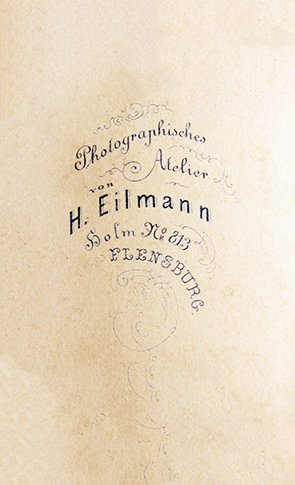 Photographisches
Atelier
von
H. Eilmann
Holm No 813
FLENSBURG.